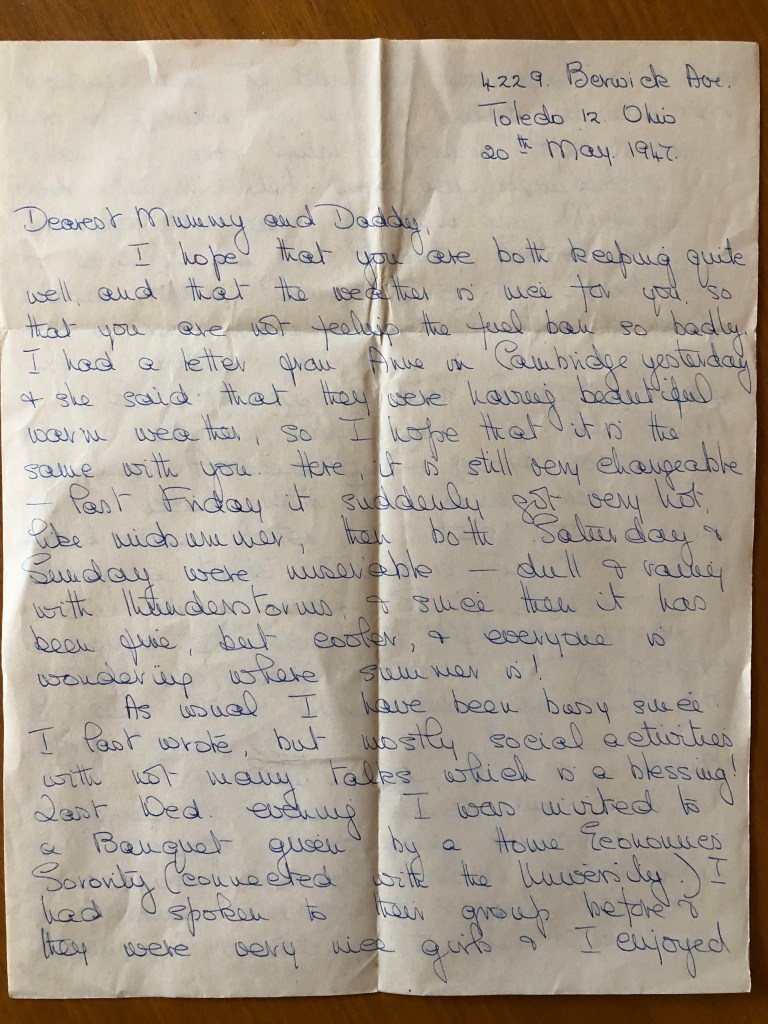 4229. Berwick Ave.
Toledo 12. Ohio
20th May. 1947.
Dearest Mummy and Daddy,
I hope that you are both keeping quite
well, and that the weather is nice for you, so
that you are not feeling the fuel ban so badly.
I had a letter from Anne in Cambridge yesterday
& she said that they were having beautiful
warm weather, so I hope that it is the
same with you. Here, it is still very changeable
— last Friday it suddenly got very hot,
like midsummer, then both Saturday &
Sunday were miserable — dull & rainy
with thunderstorms, & since then it has
been fine, but cooler, & everyone is
wondering where summer is!
As usual I have been busy since
I last wrote, but mostly social activities
with not many talks which is a blessing!
Last Wed. evening I was invited to
a Banquet given by a Home Economics
Sorority (connected with the University.) I
had spoken to their group before &
they were very nice girls & I enjoyed